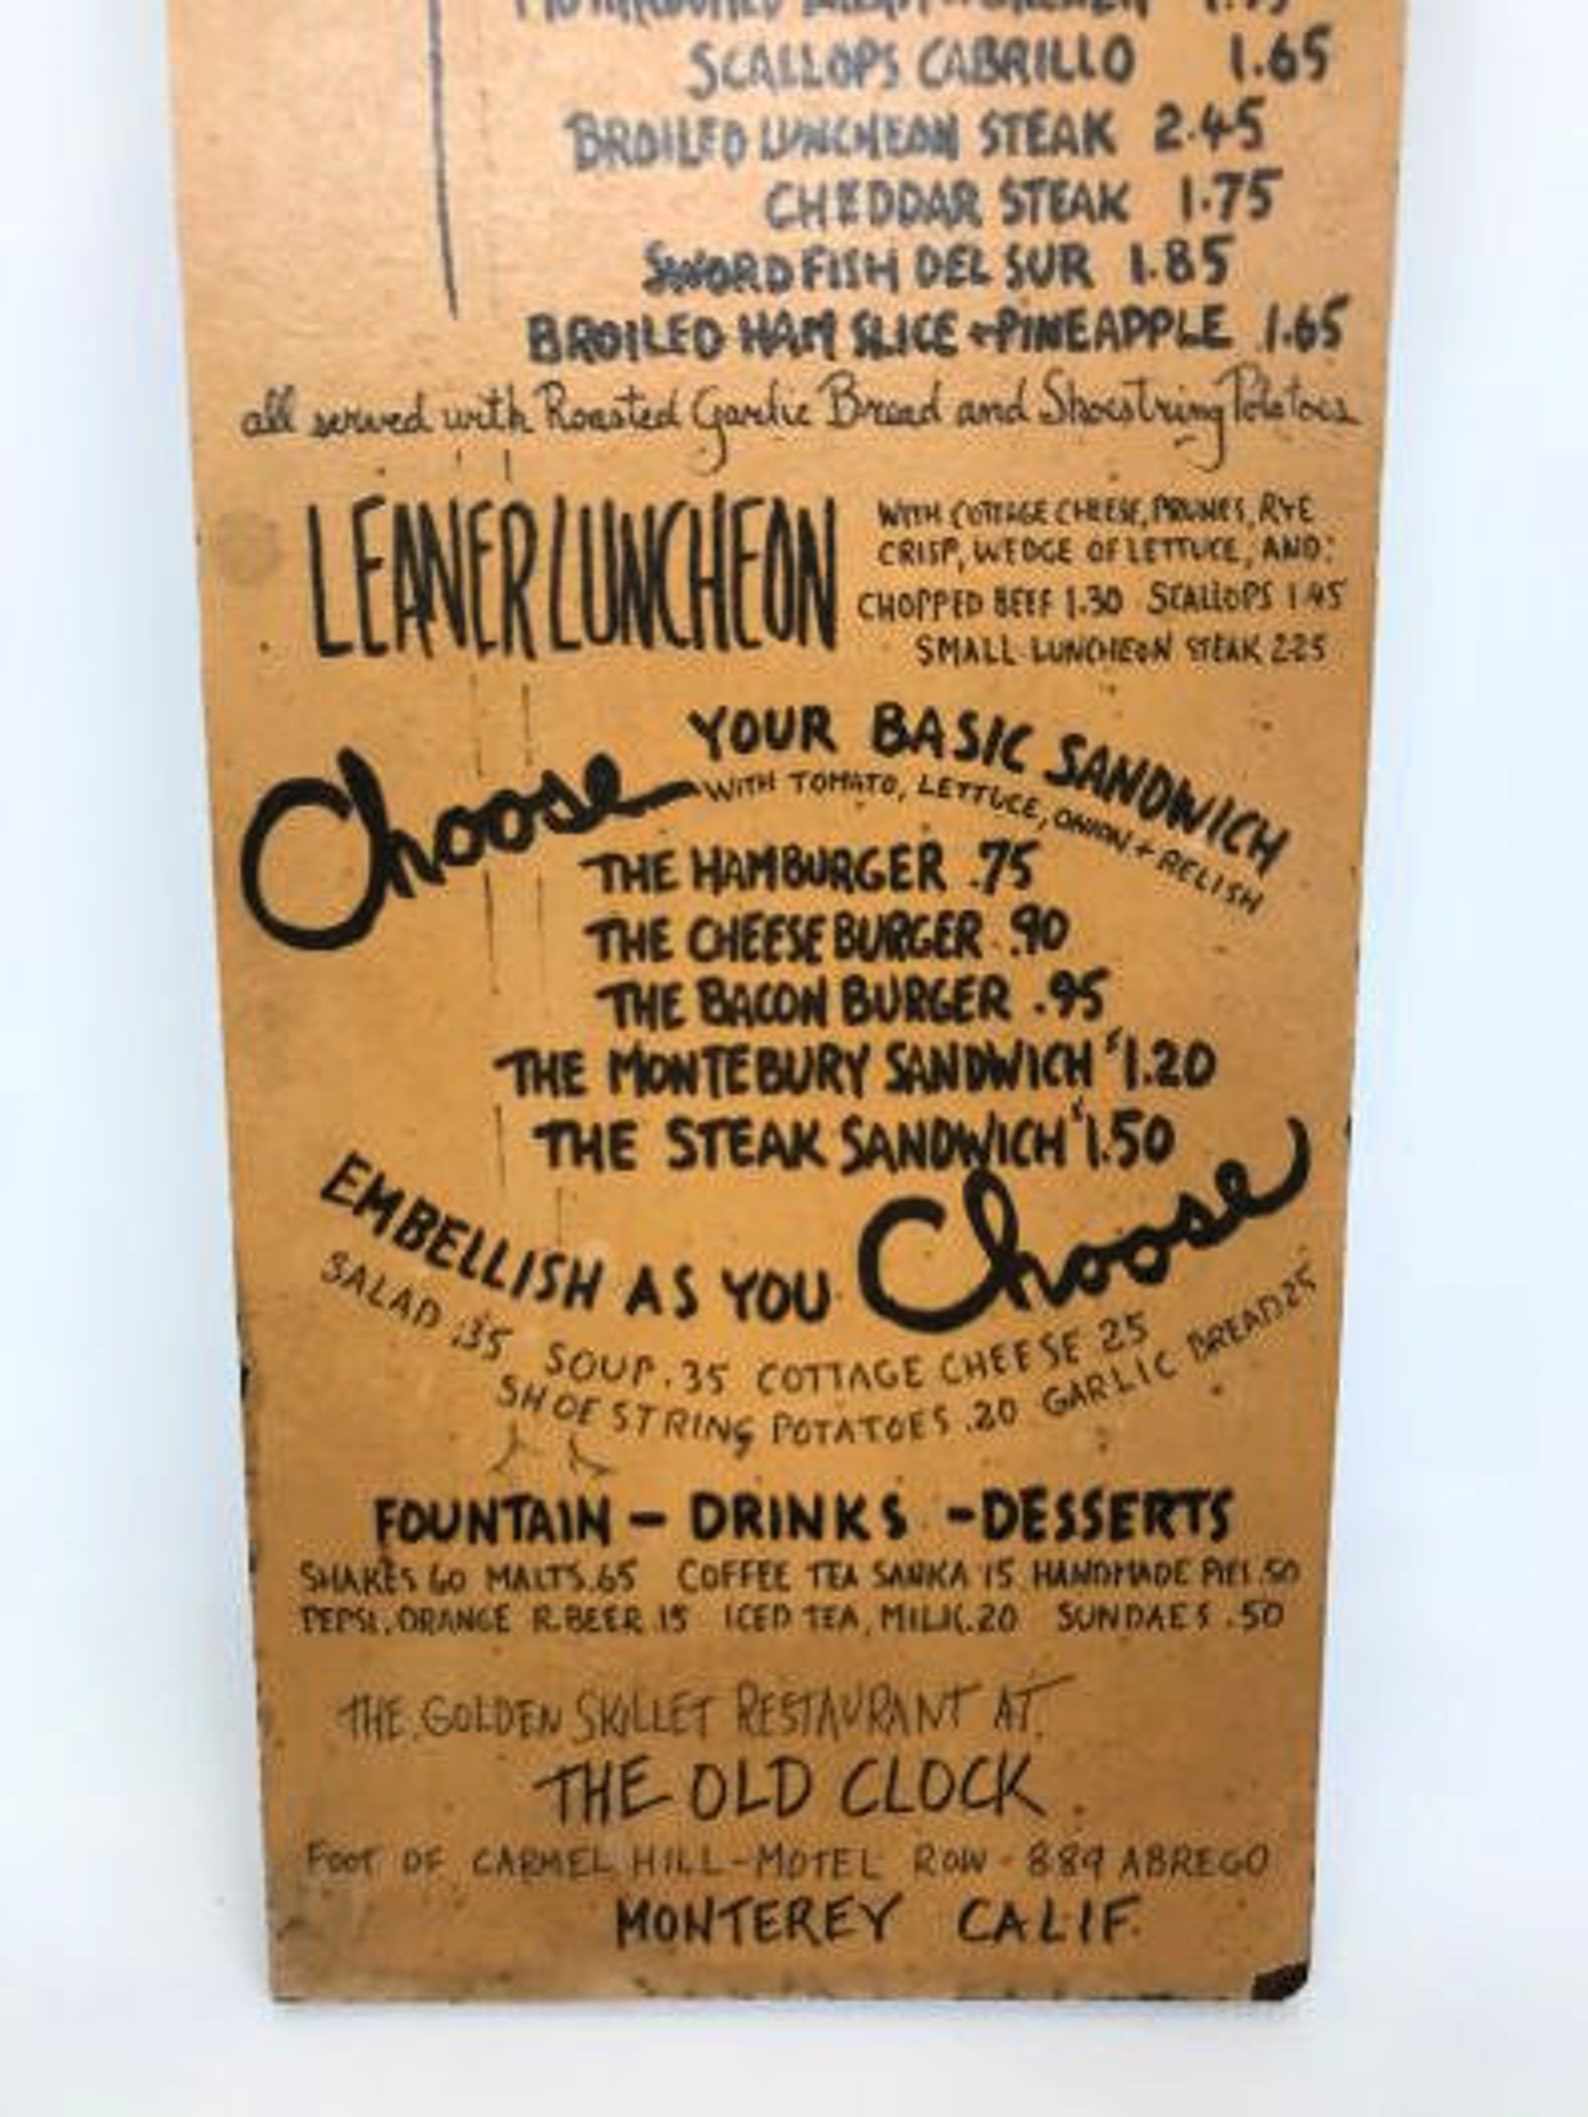 SCALLOPS CABRILLO 1.65
BROILED LUNCHEON STEAK 2.45
CHEDDAR STEAK 1.75
SWORDFISH DEL SUR 1.85
BROILED HAM SLICE + PINEAPPLE 1.65
all served with Roasted Garlic Bread and Shoestring Potatoes
LEANER LUNCHEON
WITH COTTAGE CHEESE, PRUNES, RYE
CRISP, WEDGE OF LETTUCE, AND:
CHOPPED BEEF 1.30 SCALLOPS 1.45
SMALL LUNCHEON STEAK 2.25
Choose YOUR BASIC SANDWICH
WITH TOMATO, LETTUCE, ONION + RELISH
THE HAMBURGER .75
THE CHEESE BURGER .90
THE BACON BURGER .95
THE MONTEBURY SANDWICH $1.20
THE STEAK SANDWICH $1.50
EMBELLISH AS YOU Choose
SALAD .35 SOUP .35 COTTAGE CHEESE 25
SHOESTRING POTATOES .20 GARLIC BREAD 25
FOUNTAIN - DRINKS - DESSERTS
SHAKES 60 MALTS .65 COFFEE TEA SANKA 15 HANDMADE PIES .50
PEPSI, ORANGE R. BEER .15 ICED TEA, MILK .20 SUNDAES .50
THE GOLDEN SKILLET RESTAURANT AT
THE OLD CLOCK
FOOT OF CARMEL HILL - MOTEL ROW - 889 ABREGO
MONTEREY CALIF.